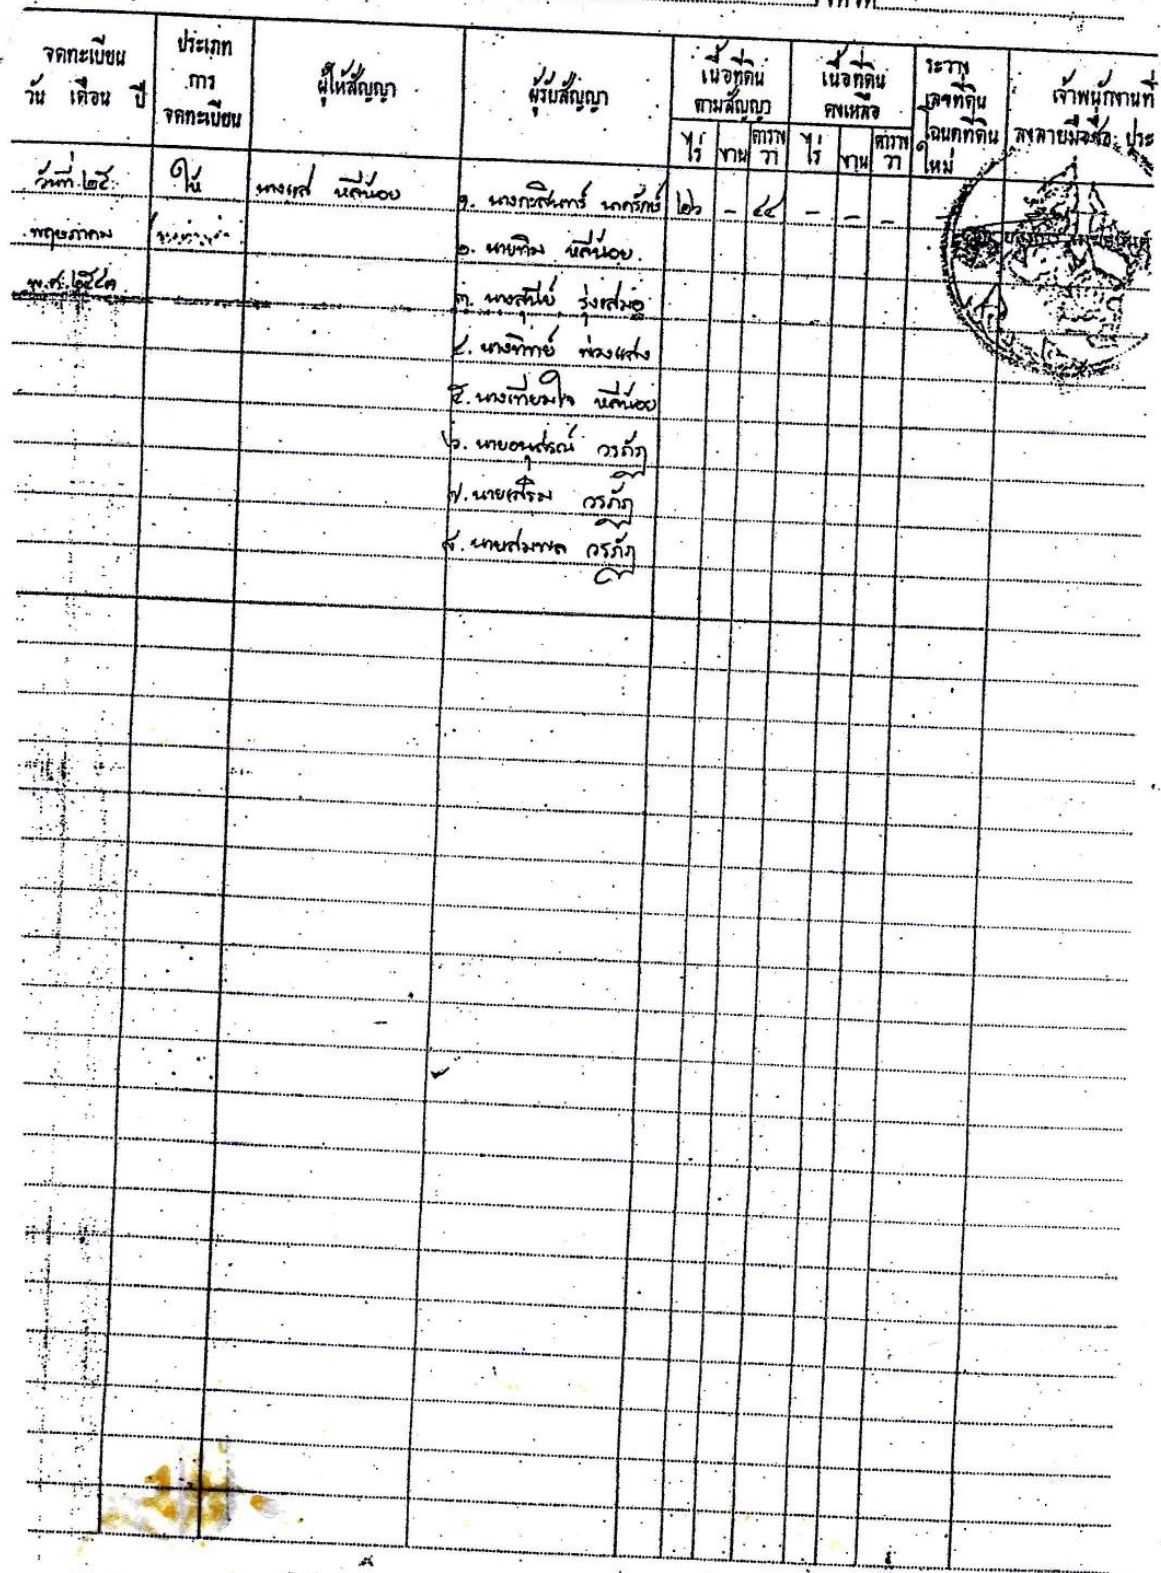 จดทะเบียน
วัน เดือน ปี
ประเภท
การ
จดทะเบียน
ผู้ให้สัญญา
ผู้รับสัญญา
เนื้อที่ดิน
ตามสัญญา
ไร่ งาน ตาราง
วา
เนื้อที่ดิน
คงเหลือ
ไร่ งาน ตาราง
วา
ระวาง
เลขที่ดิน
โฉนดที่ดิน
ใหม่
เจ้าพนักงานที่
ลงลายมือชื่อ ประ
วันที่ ๒๕ ให้ นางแส หลีน้อย ๑. นางกวีสินทร์ นาครักษ์ ๒๖ - ๔๔ - - -
พฤษภาคม ๒. นายทิม หลีน้อย
พ.ศ. ๒๕๔๓ ๓. นางสุนีย์ รุ่งเสมอ
๔. นางทิพย์ พ่วงแสง
๕. นางเทียมใจ หลีน้อย
๖. นายอนุสรณ์ วรภัฏ
๗. นายเสริม วรภัฏ
๘. นายสมพล วรภัฏ